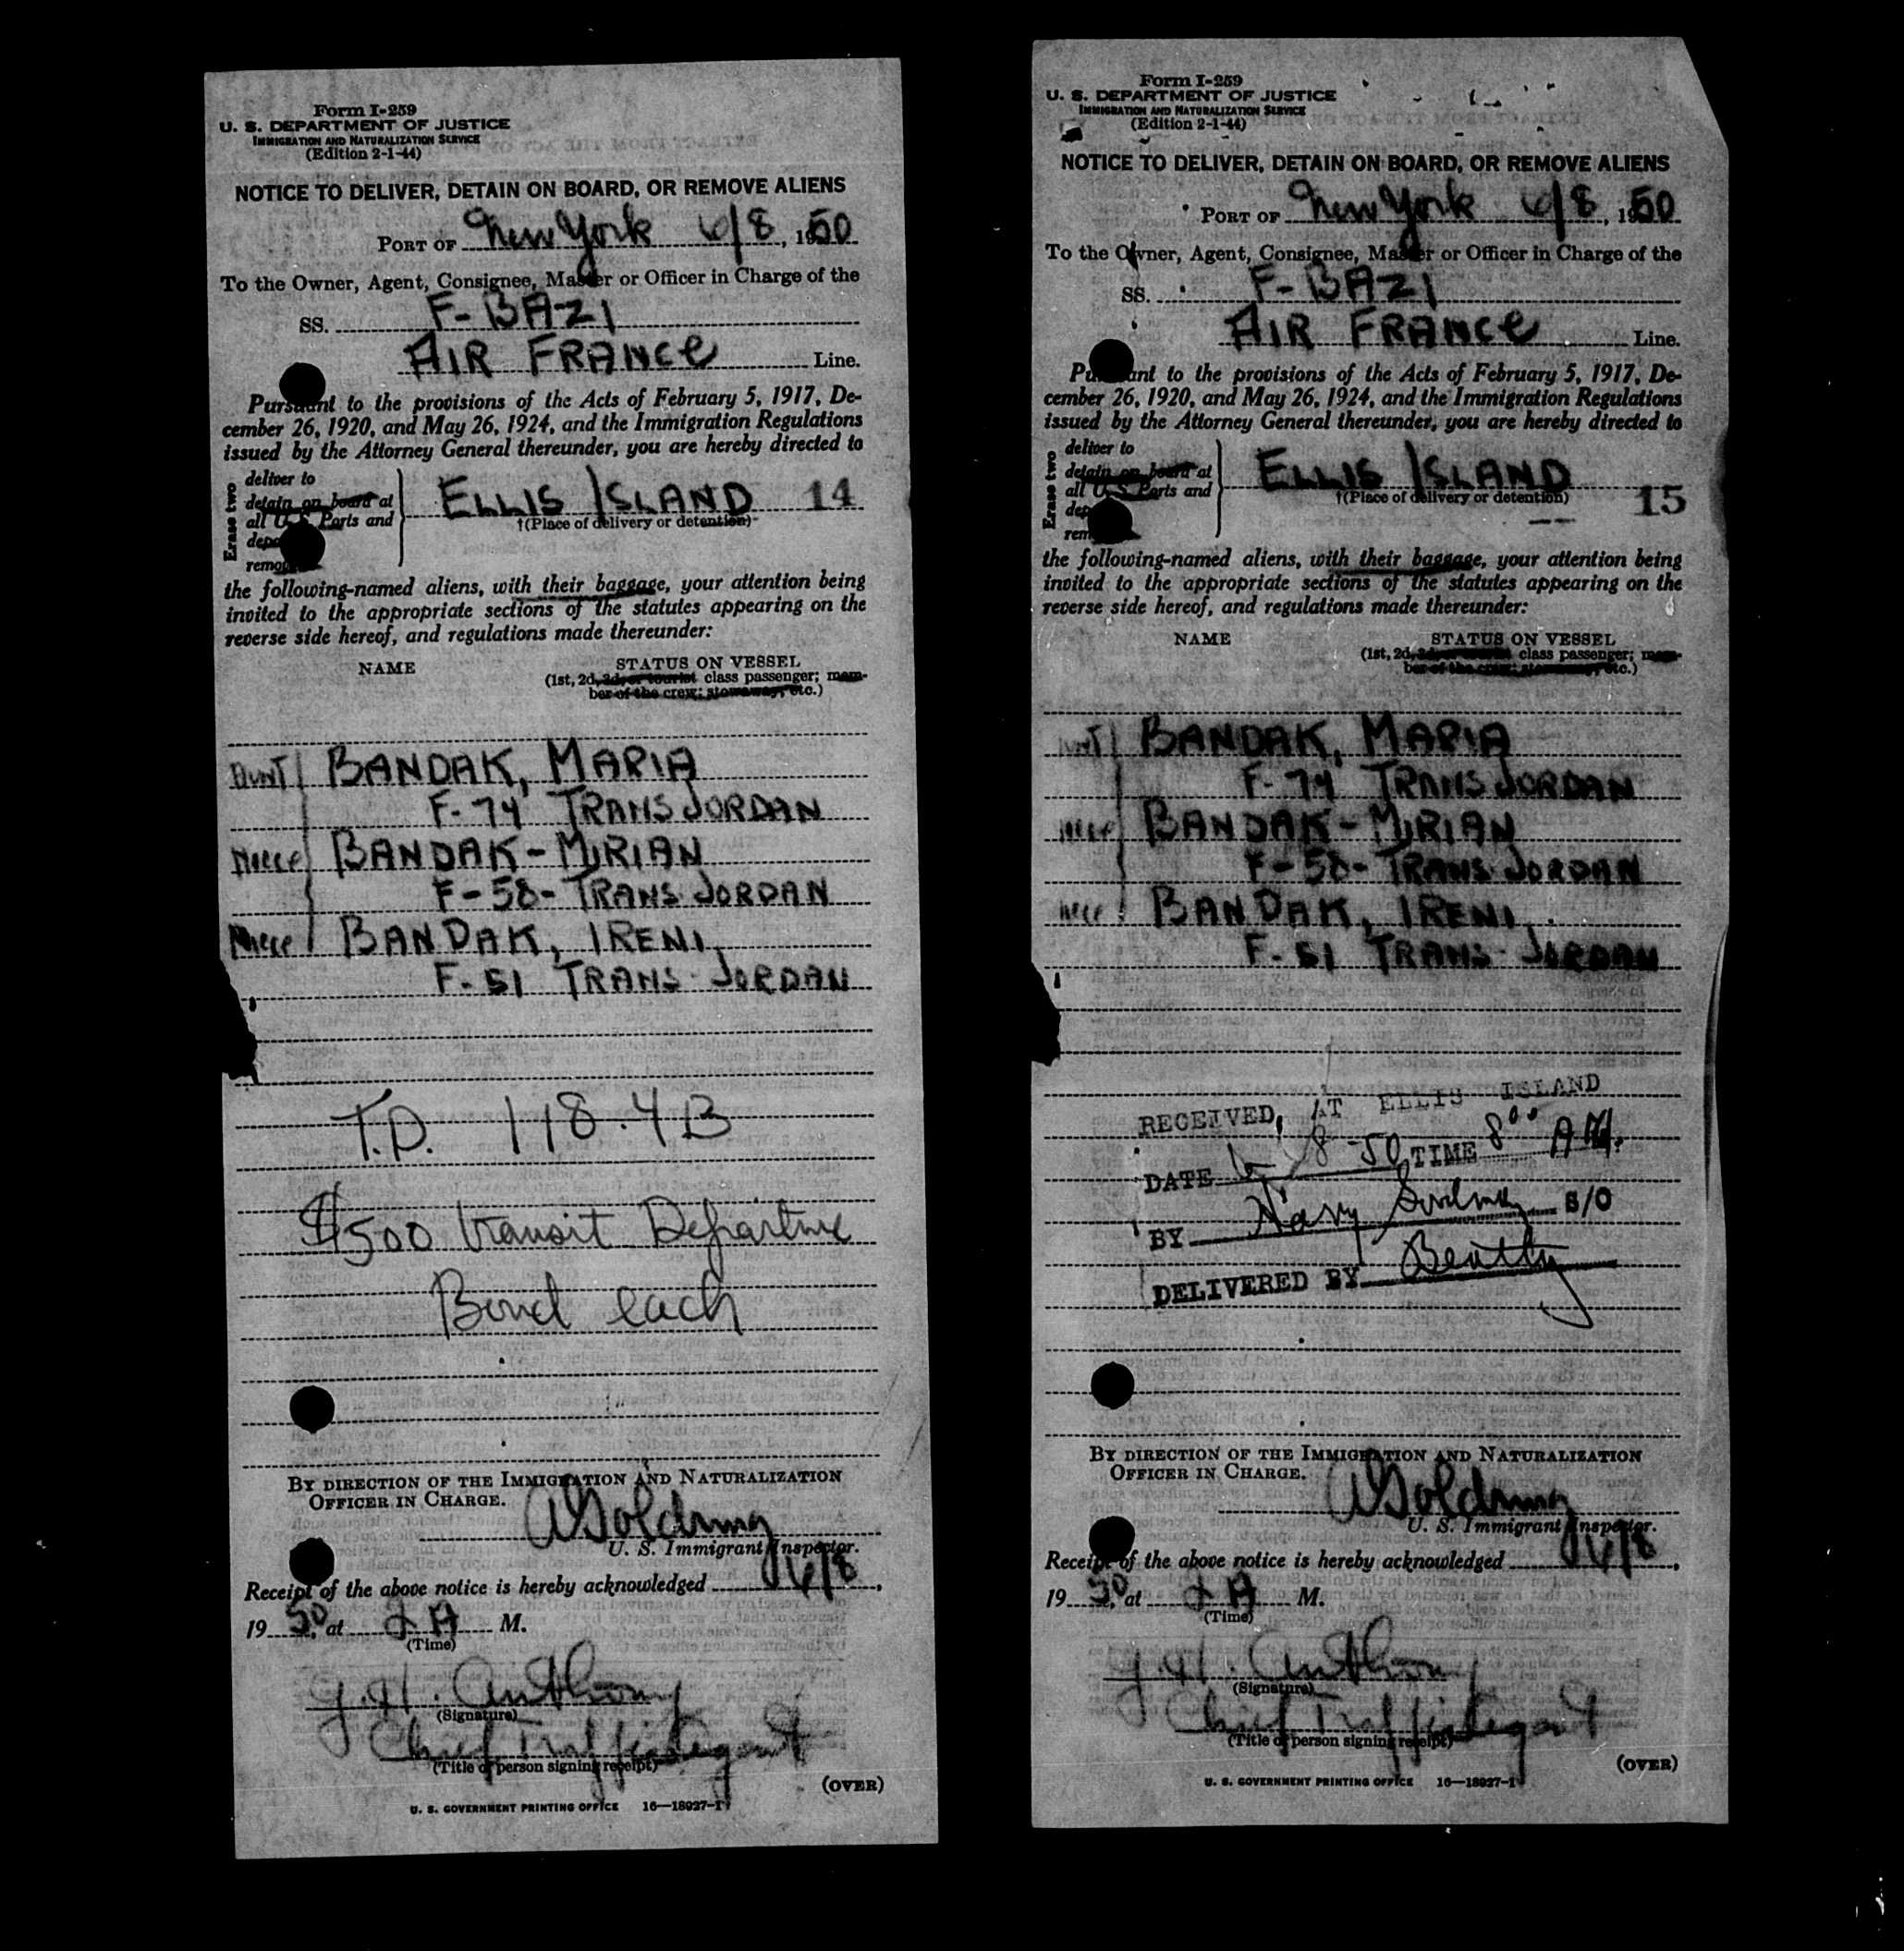 Form I-259
U. S. DEPARTMENT OF JUSTICE
IMMIGRATION AND NATURALIZATION SERVICE
(Edition 2-1-44)
NOTICE TO DELIVER, DETAIN ON BOARD, OR REMOVE ALIENS
PORT OF New York 6/8, 1950
To the Owner, Agent, Consignee, Master or Officer in Charge of the
SS. F-BAZI
AIR FRANCE Line.
Pursuant to the provisions of the Acts of February 5, 1917, De-
cember 26, 1920, and May 26, 1924, and the Immigration Regulations
issued by the Attorney General thereunder, you are hereby directed to
Erase two
deliver to
detain on board at
all U. S. Ports and
remo
ELLIS ISLAND 14
†(Place of delivery or detention)
the following-named aliens, with their baggage, your attention being
invited to the appropriate sections of the statutes appearing on the
reverse side hereof, and regulations made thereunder:
NAME STATUS ON VESSEL
(1st, 2d, 3d, or tourist class passenger; mem-
ber of the crew; stowaway, etc.)
AUNT BANDAK, MARIA
F-74 TRANSJORDAN
NIECE BANDAK-MIRIAN
F-58-TRANS JORDAN
Niece BANDAK, IRENI
F-51 TRANS-JORDAN
T.D. 118.4B
$500 transit Departure
Bond each
BY DIRECTION OF THE IMMIGRATION AND NATURALIZATION
OFFICER IN CHARGE.
A Goldring
U. S. Immigrant Inspector.
Receipt of the above notice is hereby acknowledged 6/8,
1950, at 2 A M.
(Time)
Anthony
(Signature)
Chief Traffic Agent
(Title of person signing receipt)
(OVER)
U. S. GOVERNMENT PRINTING OFFICE 16—18927-1
Form I-259
U. S. DEPARTMENT OF JUSTICE
IMMIGRATION AND NATURALIZATION SERVICE
(Edition 2-1-44)
NOTICE TO DELIVER, DETAIN ON BOARD, OR REMOVE ALIENS
PORT OF New York 6/8, 1950
To the Owner, Agent, Consignee, Master or Officer in Charge of the
SS. F-BAZI
AIR FRANCE Line.
Pursuant to the provisions of the Acts of February 5, 1917, De-
cember 26, 1920, and May 26, 1924, and the Immigration Regulations
issued by the Attorney General thereunder, you are hereby directed to
Erase two
deliver to
detain on board at
all U. S. Ports and
ELLIS ISLAND
†(Place of delivery or detention) 15
the following-named aliens, with their baggage, your attention being
invited to the appropriate sections of the statutes appearing on the
reverse side hereof, and regulations made thereunder:
NAME STATUS ON VESSEL
(1st, 2d, 3d, or tourist class passenger; mem-
ber of the crew; stowaway, etc.)
BANDAK, MARIA
F-74 TRANSJORDAN
BANDAK-MIRIAN
F-58-TRANS JORDAN
BANDAK, IRENI
F-51 TRANS-JORDAN
RECEIVED, AT ELLIS ISLAND
DATE 6/8 50 TIME 8 00 A M.
BY S/O
DELIVERED BY Beatty
BY DIRECTION OF THE IMMIGRATION AND NATURALIZATION
OFFICER IN CHARGE.
A Goldring
U. S. Immigrant Inspector.
Receipt of the above notice is hereby acknowledged 6/8,
1950, at 2 A M.
(Time)
Anthony
(Signature)
Chief Traffic Agent
(Title of person signing receipt)
(OVER)
U. S. GOVERNMENT PRINTING OFFICE 16—18927-1